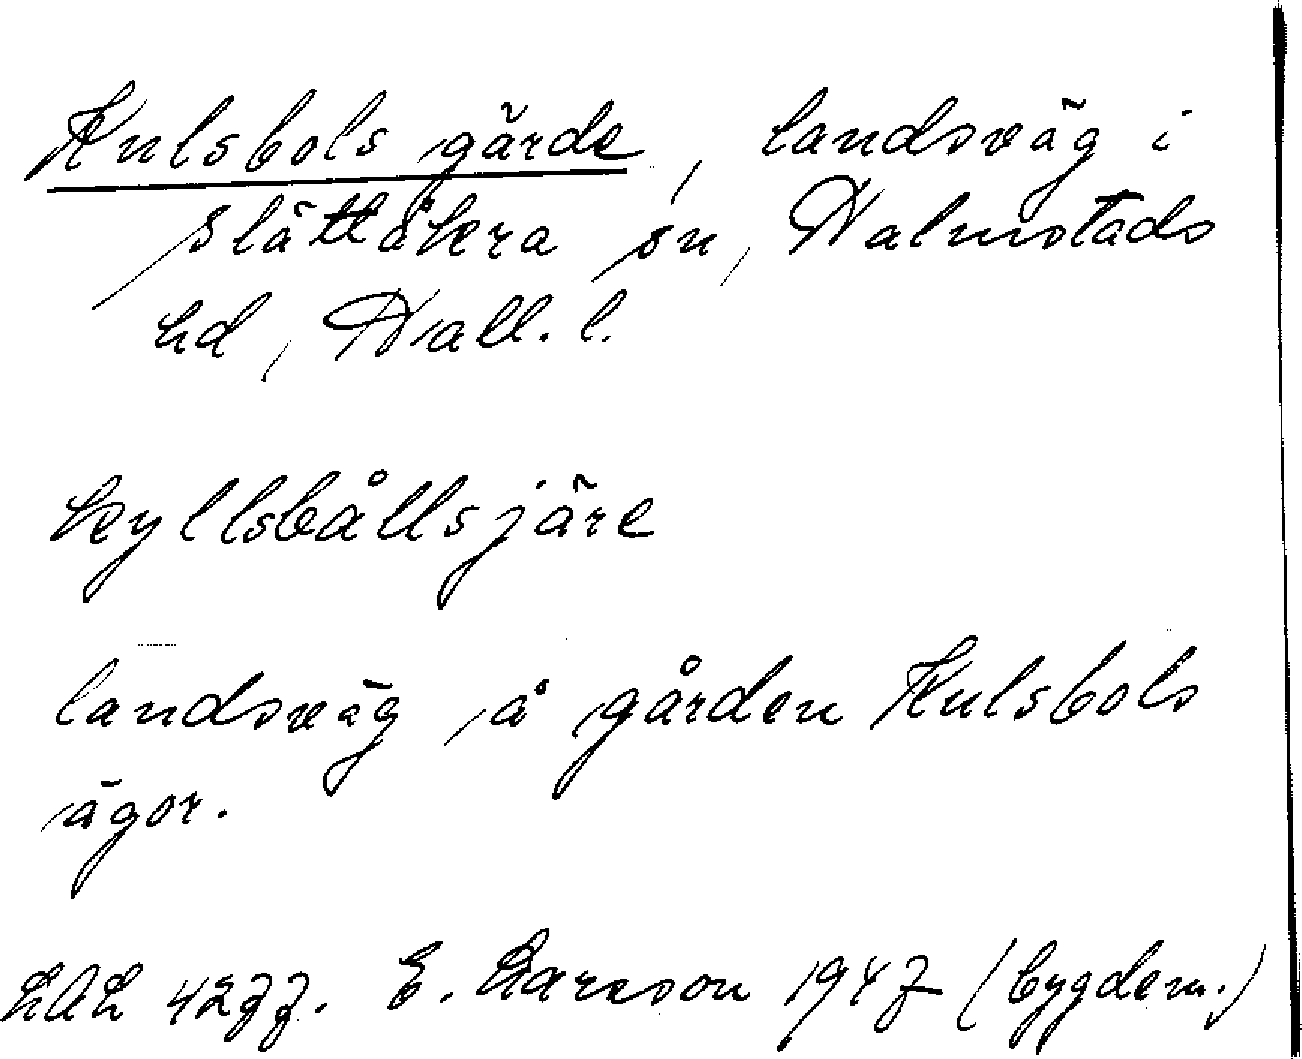 Kulsbols gärde, landsväg i
Slättåkra sn, Halmstads
hd, Hall. l.
kyllsbållsjäre
landsväg å gården Kulsbols
ägor.
LAL 4277. E. Larsson 1947 (bygdem.)